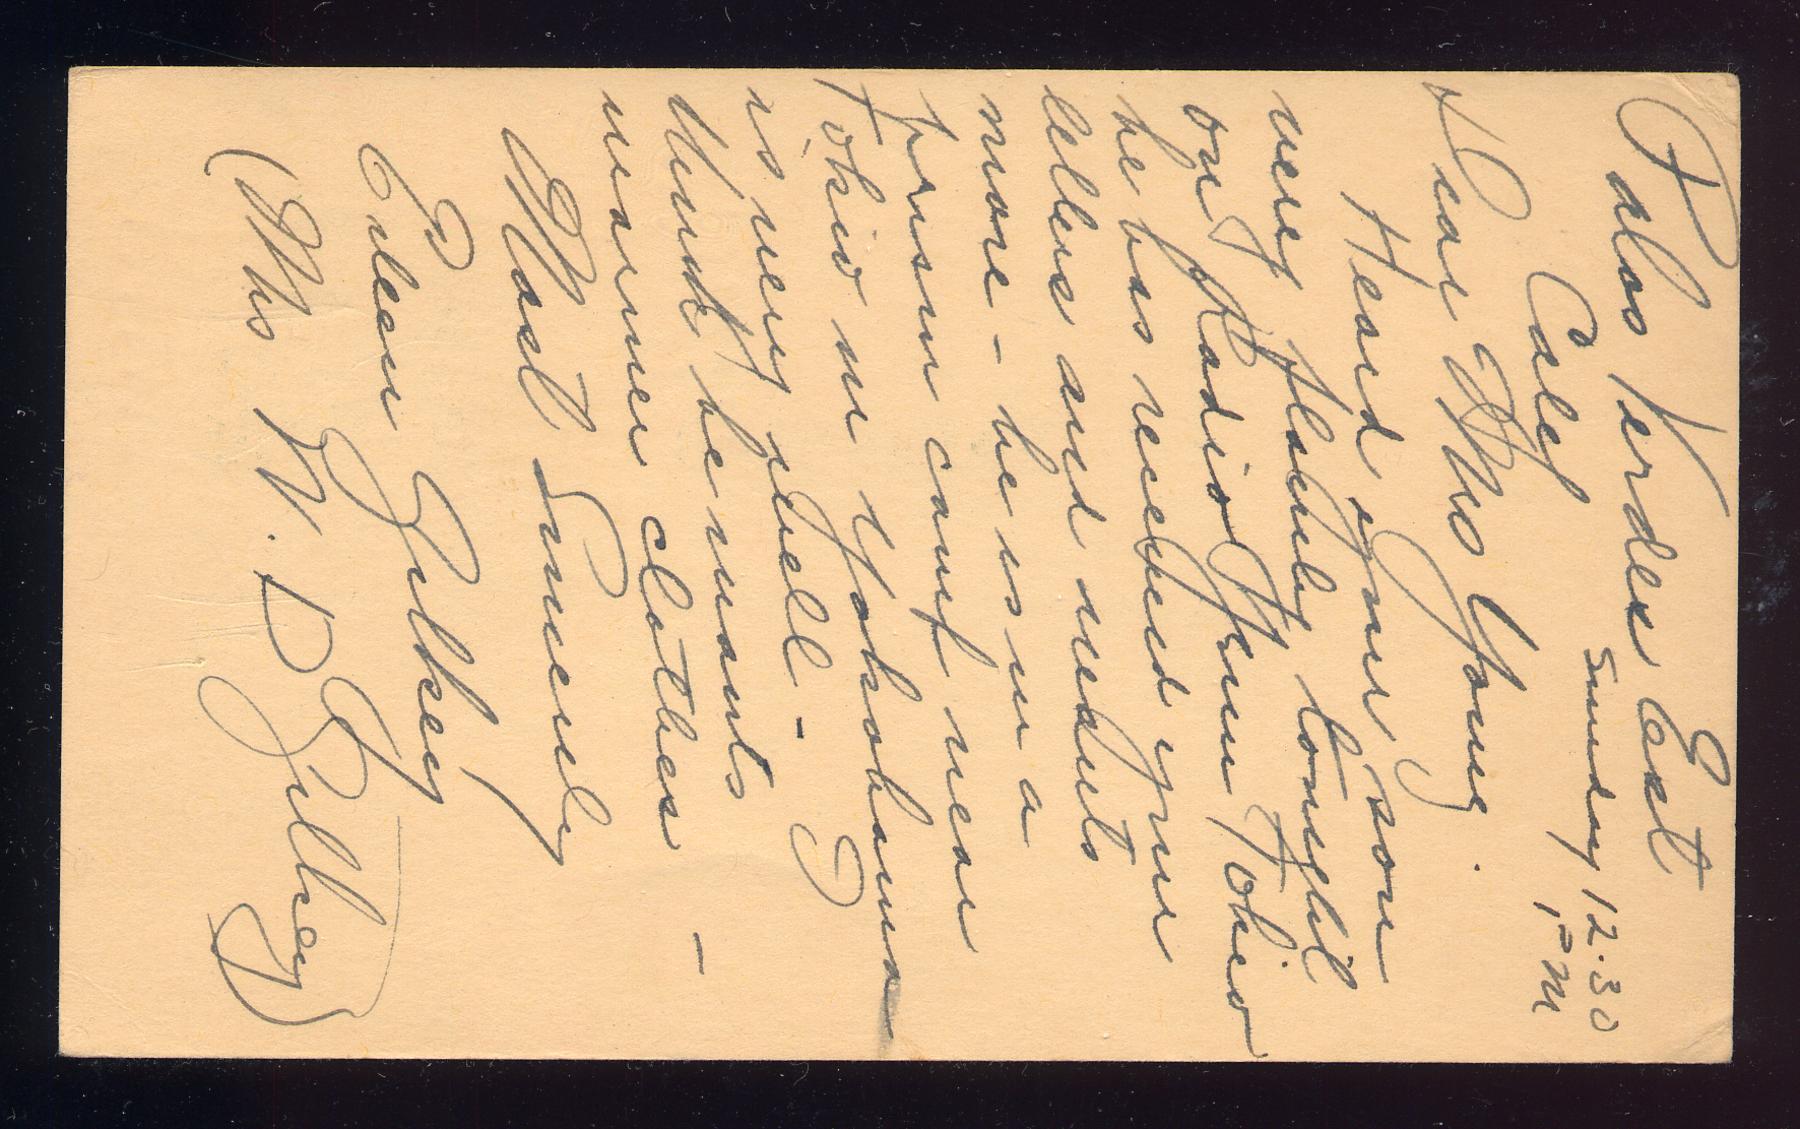 Palos Verdes Est
Calif
Sunday 12.30
PM
Dear Mrs Young.
Heard your son
very plainly tonight
on Radio from Tokio
he has received your
letters and wants
more - he is in a
prison camp near
Tokio in Yokohama
is very well - I
think he wants
warmer clothes -
Most Sincerely
Eileen Gilkey
(Mrs W. D Gilkey)